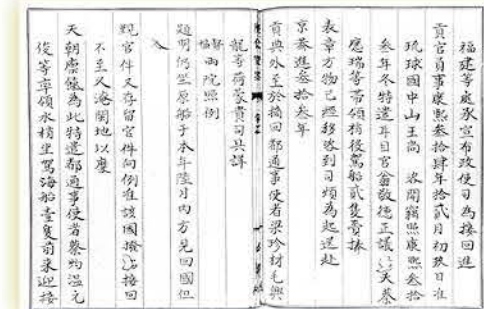 福建等處承宣布政使司為接回進
貢官員事康熙叁拾肆年拾貳月初玖日准
琉球國中山王尚 咨開竊照康熙叁拾
叁年冬特遣耳目官翁敬德正議大夫蔡
應瑞等帶領梢役駕船貳隻賫捧
表章方物已經移咨到司煩為起送赴
京恭進叁拾叁年
貢典外至於摘回都通事使者梁珍材毛興
龍等荷蒙貴司具詳
督撫兩院照例
題明仍坐原船于本年陸月內方見回國但
入
覲官伴又存留官伴向例准該國撥船接回
不至久淹閩地以廑
天朝廩餼為此特遣都通事使者蔡灼溫允
俊等率領水梢坐駕海船壹隻前來迎接